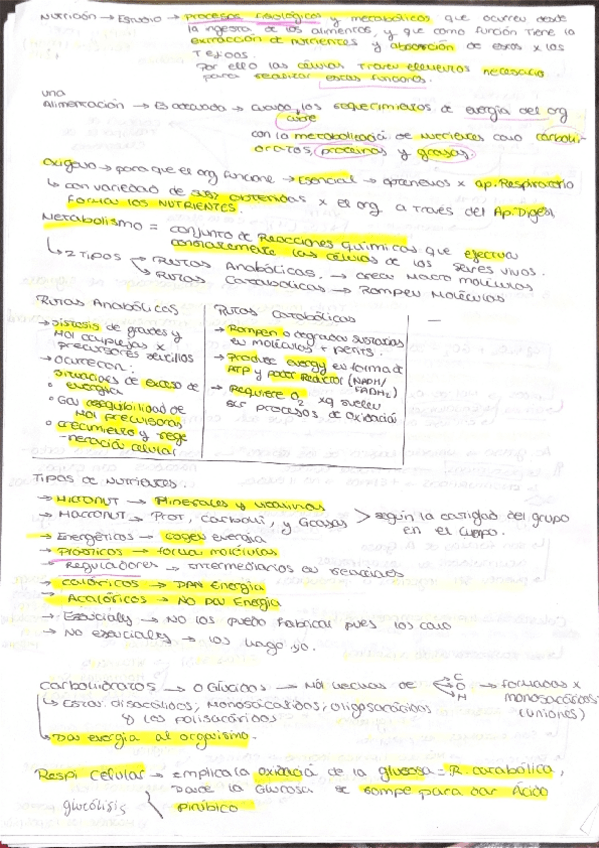 Nutrición → Estudio → procesos fisiológicos y metabólicos que ocurren desde
la ingesta de los alimentos, y que como función tiene la
extracción de nutrientes y absorción de estos x los
Tejidos.
Por ello las células traen elementos necesario
para realizar estas funciones.
una
Alimentación → Es adecuada → cuando los requerimientos de energía del org
cubre
con la metabolización de nutrientes como carbohi-
dratos, proteinas y grasas.
Oxígeno → para que el org funcione → Esencial → obtenemos x ap. Respiratorio
↳ con variedad de obtenidas x el org a través del Ap. Digest
Forma los NUTRIENTES.
Metabolismo = conjunto de Reacciones químicas que efectua
constantemente las células de los seres vivos.
↳ 2 tipos → Rutas Anabólicas. → crear macro moléculas
↳ Rutas Catabólicas → Rompen moléculas
Rutas Anabólicas
→ Síntesis de grades y
mol complejas x
precursores sencillos
→ Ocurre con:
situaciones de exceso de
◦ energía
◦ disponibilidad de
mol precursoras
◦ crecimiento y rege
-neración celular
Rutas Catabólicas
→ Rompen o degradar sustancias
en moléculas + peqñs.
→ Produce energy en forma de
ATP y poder Reductor (NADH/
FADH2)
→ Requiere O2 xq suelen
ser procesos de oxidación
—
Tipos de nutrientes.
→ Micronut → Minerales y vitaminas
→ Macronut → Prot, carbohi, y Grasas > según la cantidad del grupo
en el cuerpo.
→ Energéticos → cogen energía
→ Plásticos → formar moléculas
→ Reguladores → Intermediarios en reacciones
→ calóricos → DAN Energía
→ Acalóricos → NO DAN Energía
→ Esencials → NO los puedo fabricar pues los como
→ No esenciales → los hago yo.
Carbohidratos → o Glúcidos → Mol hechas de C O H → formadas x
monosacáridos
(uniones)
↳ Estos disacáridos, Monosacáridos, oligosacáridos
y los polisacáridos
↳ Dar energía al organismo.
Respi celular → emplica la oxidació de la glucosa = R. catabólica,
Donde la Glucosa se rompe para dar Ácido
pirúbico
glucólisis